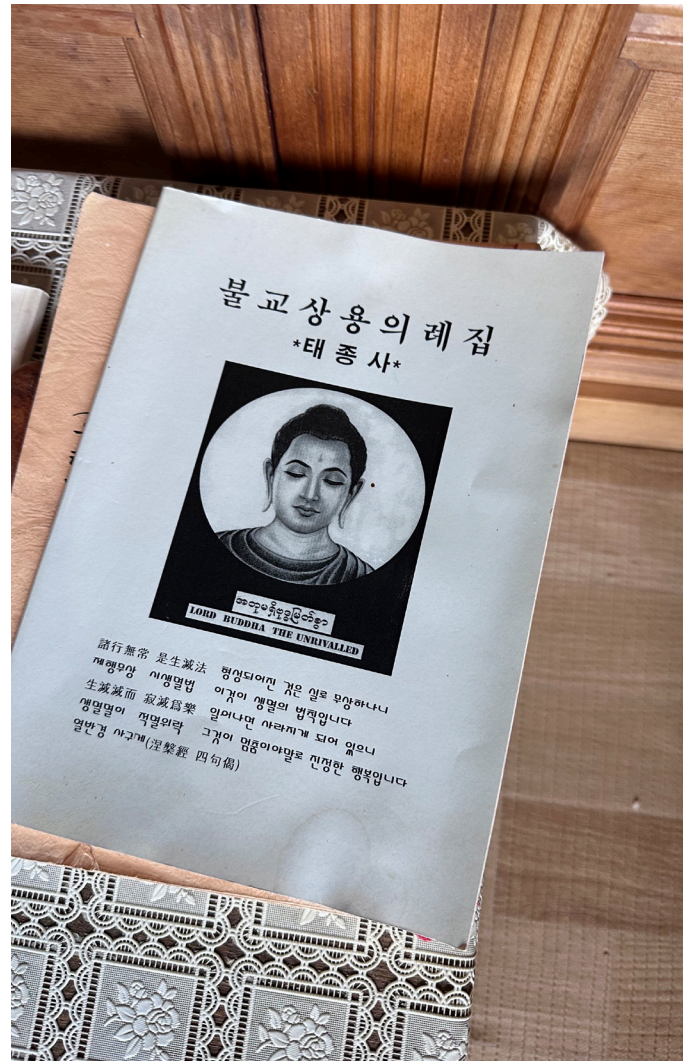 불교상용의례집
*태종사*
အတုမရှိဗုဒ္ဓမြတ်စွာ
LORD BUDDHA THE UNRIVALLED
諸行無常 是生滅法 형성되어진 것은 실로 무상하나니
제행무상 시생멸법 이것이 생멸의 법칙입니다
生滅滅而 寂滅爲樂 일어나면 사라지게 되어 있으니
생멸멸이 적멸위락 그것이 멈춤이야말로 진정한 행복입니다
열반경 사구게(涅槃經 四句偈)